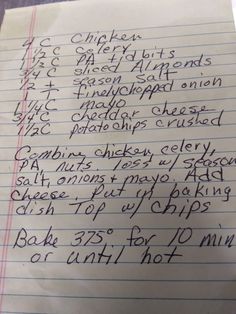 4 C Chicken
1 1/2 C celery
1 1/2 C PA tidbits
3/4 C sliced Almonds
1/2 t season salt
T finely chopped onion
1/4 C mayo
3/4 C cheddar cheese
1 1/2 C potato chips crushed
Combine chicken, celery,
PA, nuts toss w/ season
salt, onions + mayo. Add
cheese. Put in baking
dish Top w/ chips
Bake 375° for 10 min
or until hot